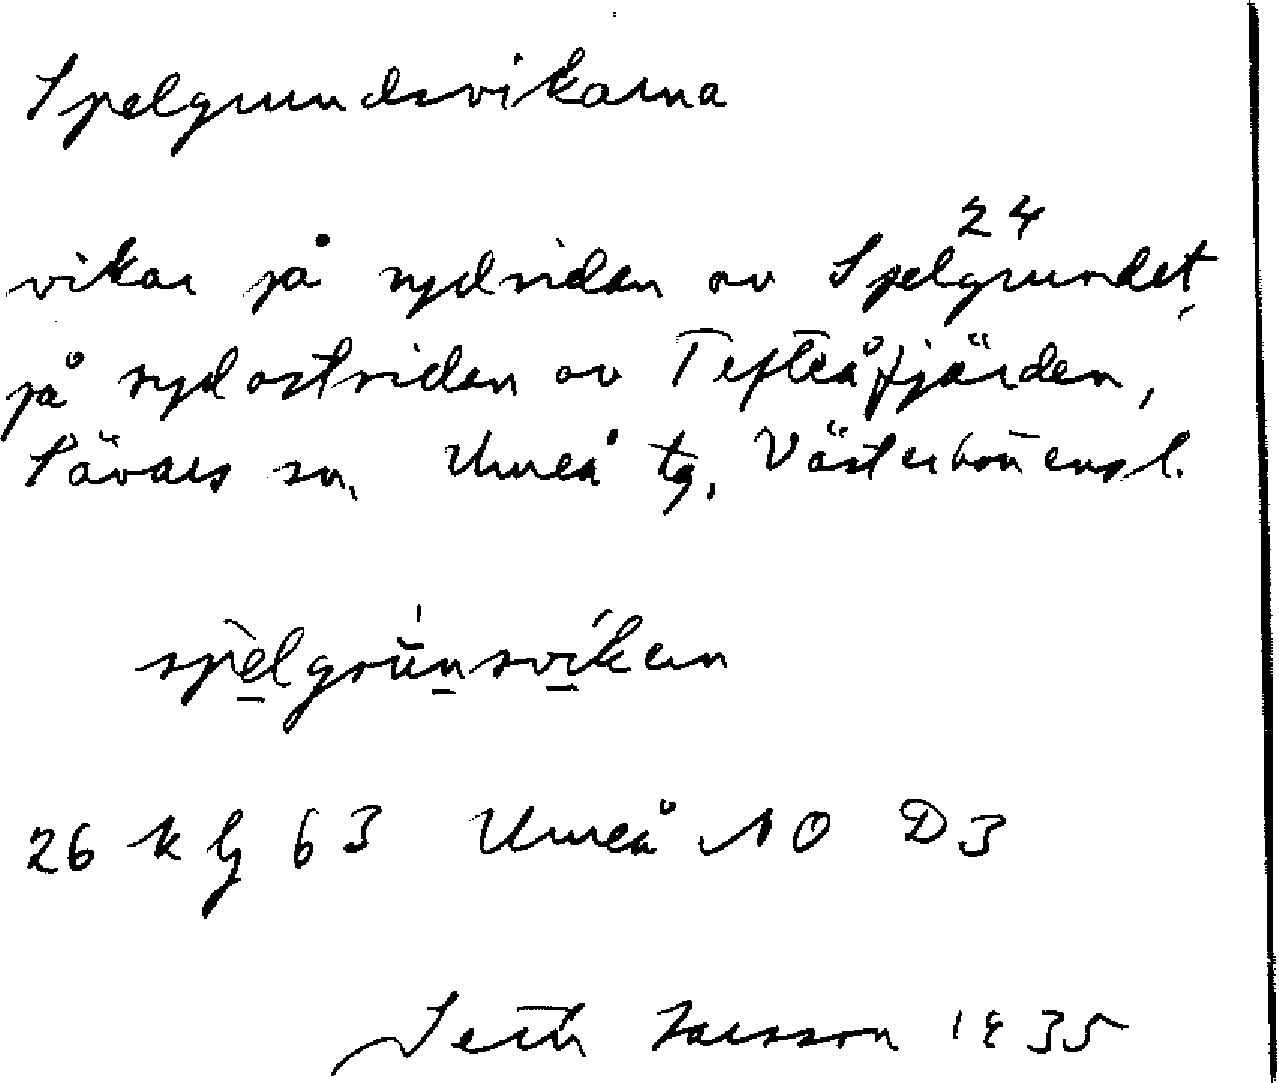 Spelgrundsvikarna
24
vikar på sydsidan av Spelgrundet,
på sydostsidan av Tefteåfjärden,
Sävars sn, Umeå tg, Västerbottens l.
spelgrunsviken
26 k lj 63 Umeå NO D3
Seth Larsson 1935